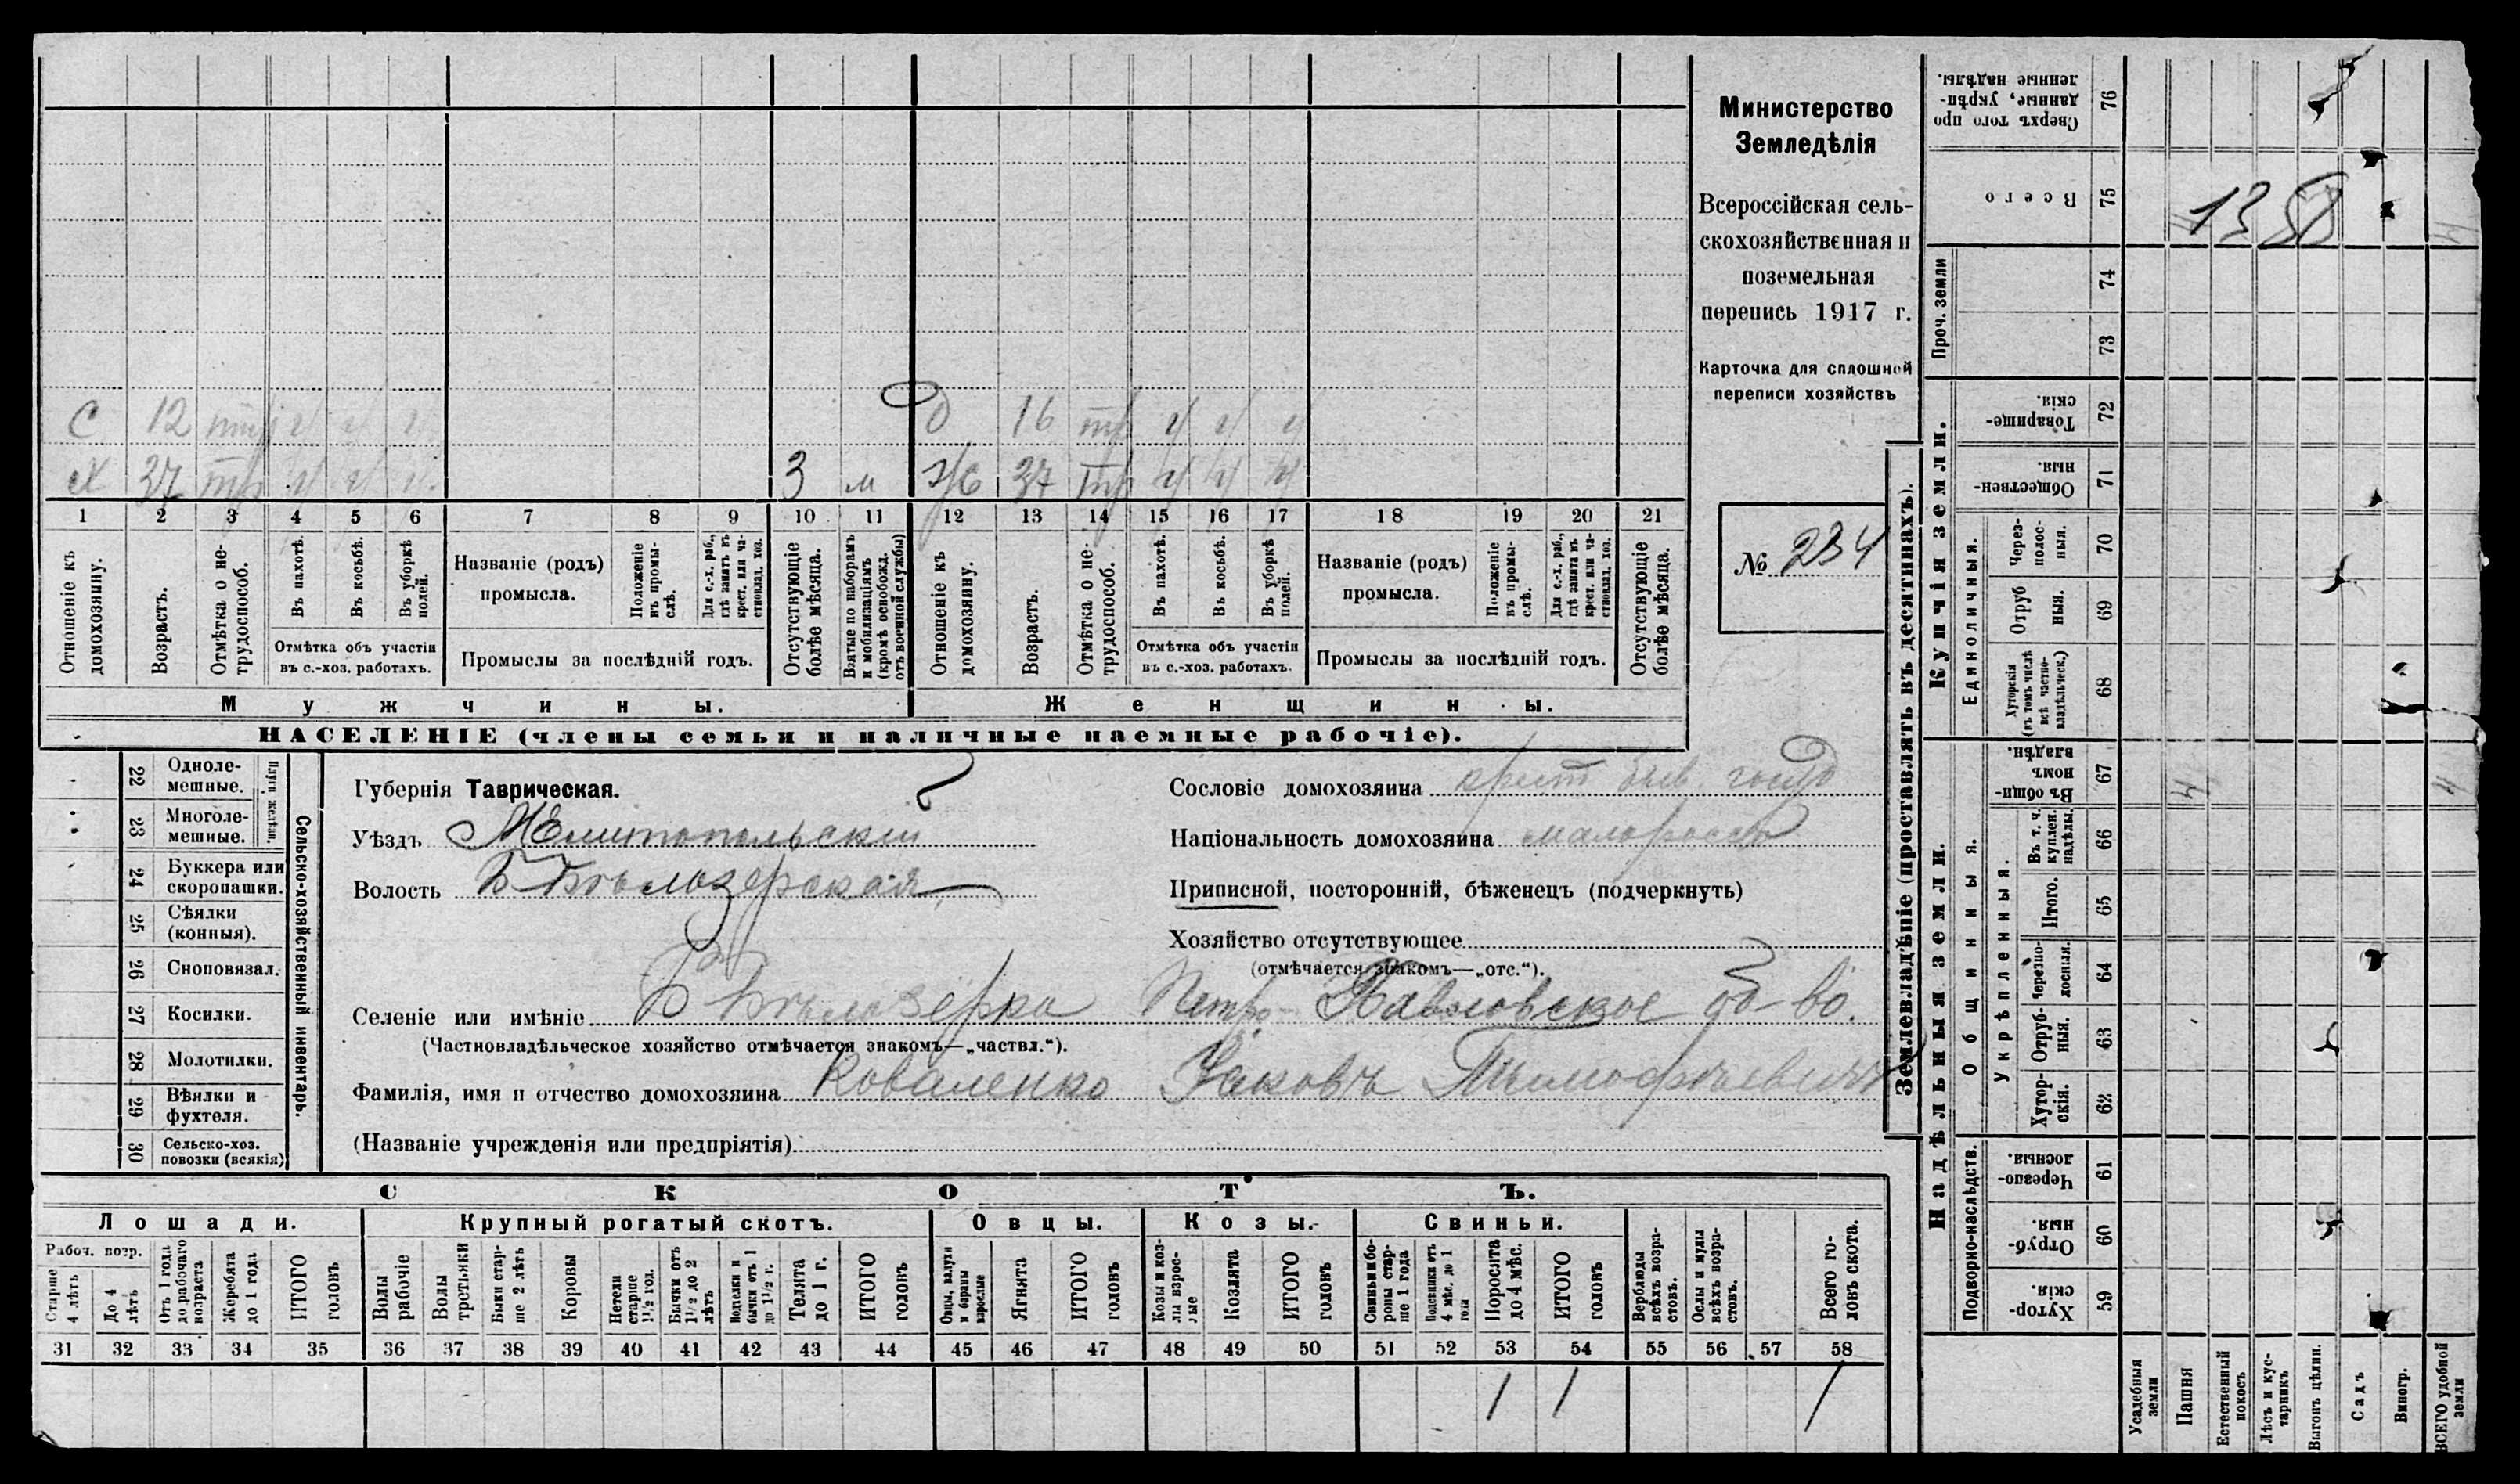 Министерство
Земледѣлія
Всероссійская сель-
скохозяйственная и
поземельная
перепись 1917 г.
Карточка для сплошной
переписи хозяйствъ
№ 234
С 12 д 16 тр
Х 37 тр 3 м ж 37 тр
1 2 3 4 5 6 7 8 9 10 11 12 13 14 15 16 17 18 19 20 21
Отношеніе къ домохозяину.
Возрастъ.
Отмѣтка о не-трудоспособ.
Въ пахотѣ.
Въ косьбѣ.
Въ уборкѣ полей.
Отмѣтка объ участіи
въ с.-хоз. работахъ.
Названіе (родъ)
промысла.
Положеніе въ промы-слѣ.
Для с.-х. раб., гдѣ занятъ въ крест. или ча-стновлад. хоз.
Промыслы за послѣдній годъ.
Отсутствующіе болѣе мѣсяца.
Взятые по наборамъ и мобилизаціямъ (кромѣ освобожд. отъ военной службы)
Отношеніе къ домохозяину.
Возрастъ.
Отмѣтка о не-трудоспособ.
Въ пахотѣ.
Въ косьбѣ.
Въ уборкѣ полей.
Отмѣтка объ участіи
въ с.-хоз. работахъ.
Названіе (родъ)
промысла.
Положеніе въ промы-слѣ.
Для с.-х. раб., гдѣ занята въ крест. или ча-стновлад. хоз.
Промыслы за послѣдній годъ.
Отсутствующіе болѣе мѣсяца.
Мужчины. Женщины.
НАСЕЛЕНІЕ (члены семьи и наличные наемные рабочіе).
Сельско-хозяйственный инвентарь.
Плуги желѣзн.
22 Одноле-мешные.
23 Многоле-мешные.
24 Буккера или скоропашки.
25 Сѣялки (конныя).
26 Сноповязал.
27 Косилки.
28 Молотилки.
29 Вѣялки и фухтеля.
30 Сельско-хоз. повозки (всякія)
Губернія Таврическая.
Уѣздъ Мелитопольскій
Волость Б Бѣлозерская
Сословіе домохозяина крест. быв. госуд
Національность домохозяина малороссъ
Приписной, посторонній, бѣженецъ (подчеркнуть)
Хозяйство отсутствующее
(отмѣчается знакомъ—„отс.“).
Селеніе или имѣніе Б Бѣлозерка Петро-Павловское об-во.
(Частновладѣльческое хозяйство отмѣчается знакомъ—„частвл.“).
Фамилія, имя и отчество домохозяина Коваленко Яковъ Тимофѣевичъ
(Названіе учрежденія или предпріятія)
СКОТЪ.
Лошади. Крупный рогатый скотъ. Овцы. Козы. Свиньи.
Рабоч. возр.
Старше 4 лѣтъ
До 4 лѣтъ
Отъ 1 года до рабочаго возраста
Жеребята до 1 года
ИТОГО головъ
Волы рабочіе
Волы третьяки
Быки стар-ше 2 лѣтъ
Коровы
Нетели старше 1½ год.
Бычки отъ 1½ до 2 лѣтъ
Подтелки и бычки отъ 1 до 1½ г.
Телята до 1 г.
ИТОГО головъ
Овцы, валухи и бараны взрослые
Ягнята
ИТОГО головъ
Козы и коз-лы взрос-лые
Козлята
ИТОГО головъ
Свиньи и бо-ровы стар-ше 1 года
Подсвинки отъ 4 мѣс. до 1 года
Поросята до 4 мѣс.
ИТОГО головъ
Верблюды всѣхъ возра-стовъ.
Ослы и мулы всѣхъ возра-стовъ.
Всего го-ловъ скота.
31 32 33 34 35 36 37 38 39 40 41 42 43 44 45 46 47 48 49 50 51 52 53 54 55 56 57 58
1 1 1
Землевладѣніе (проставлять въ десятинахъ).
Купчія земли.
Надѣльныя земли.
Сверхъ того про-данные, укрѣп-ленные надѣлы. 76
Всего 75
1358
Проч. земли 74
73
Товарище-скія. 72
Обществен-ныя. 71
Единоличныя.
Через-полос-ныя. 70
Отруб-ныя. 69
Хуторскія (въ томъ числѣ всѣ частно-владѣльческ.) 68
Общинныя.
Въ общи-номъ владѣн. 67
4 4
Укрѣпленныя.
Въ т. ч. куплен. надѣлы. 66
Итого. 65
Черезпо-лосныя. 64
Отруб-ныя. 63
Хутор-скія. 62
Подворно-наслѣдств.
Черезпо-лосныя. 61
Отруб-ныя. 60
Хутор-скія. 59
Усадебныя земли
Пашня
Естественный покосъ
Лѣсъ и кус-тарникъ
Выгонъ цѣлин.
Садъ
Виногр.
ВСЕГО удобной земли